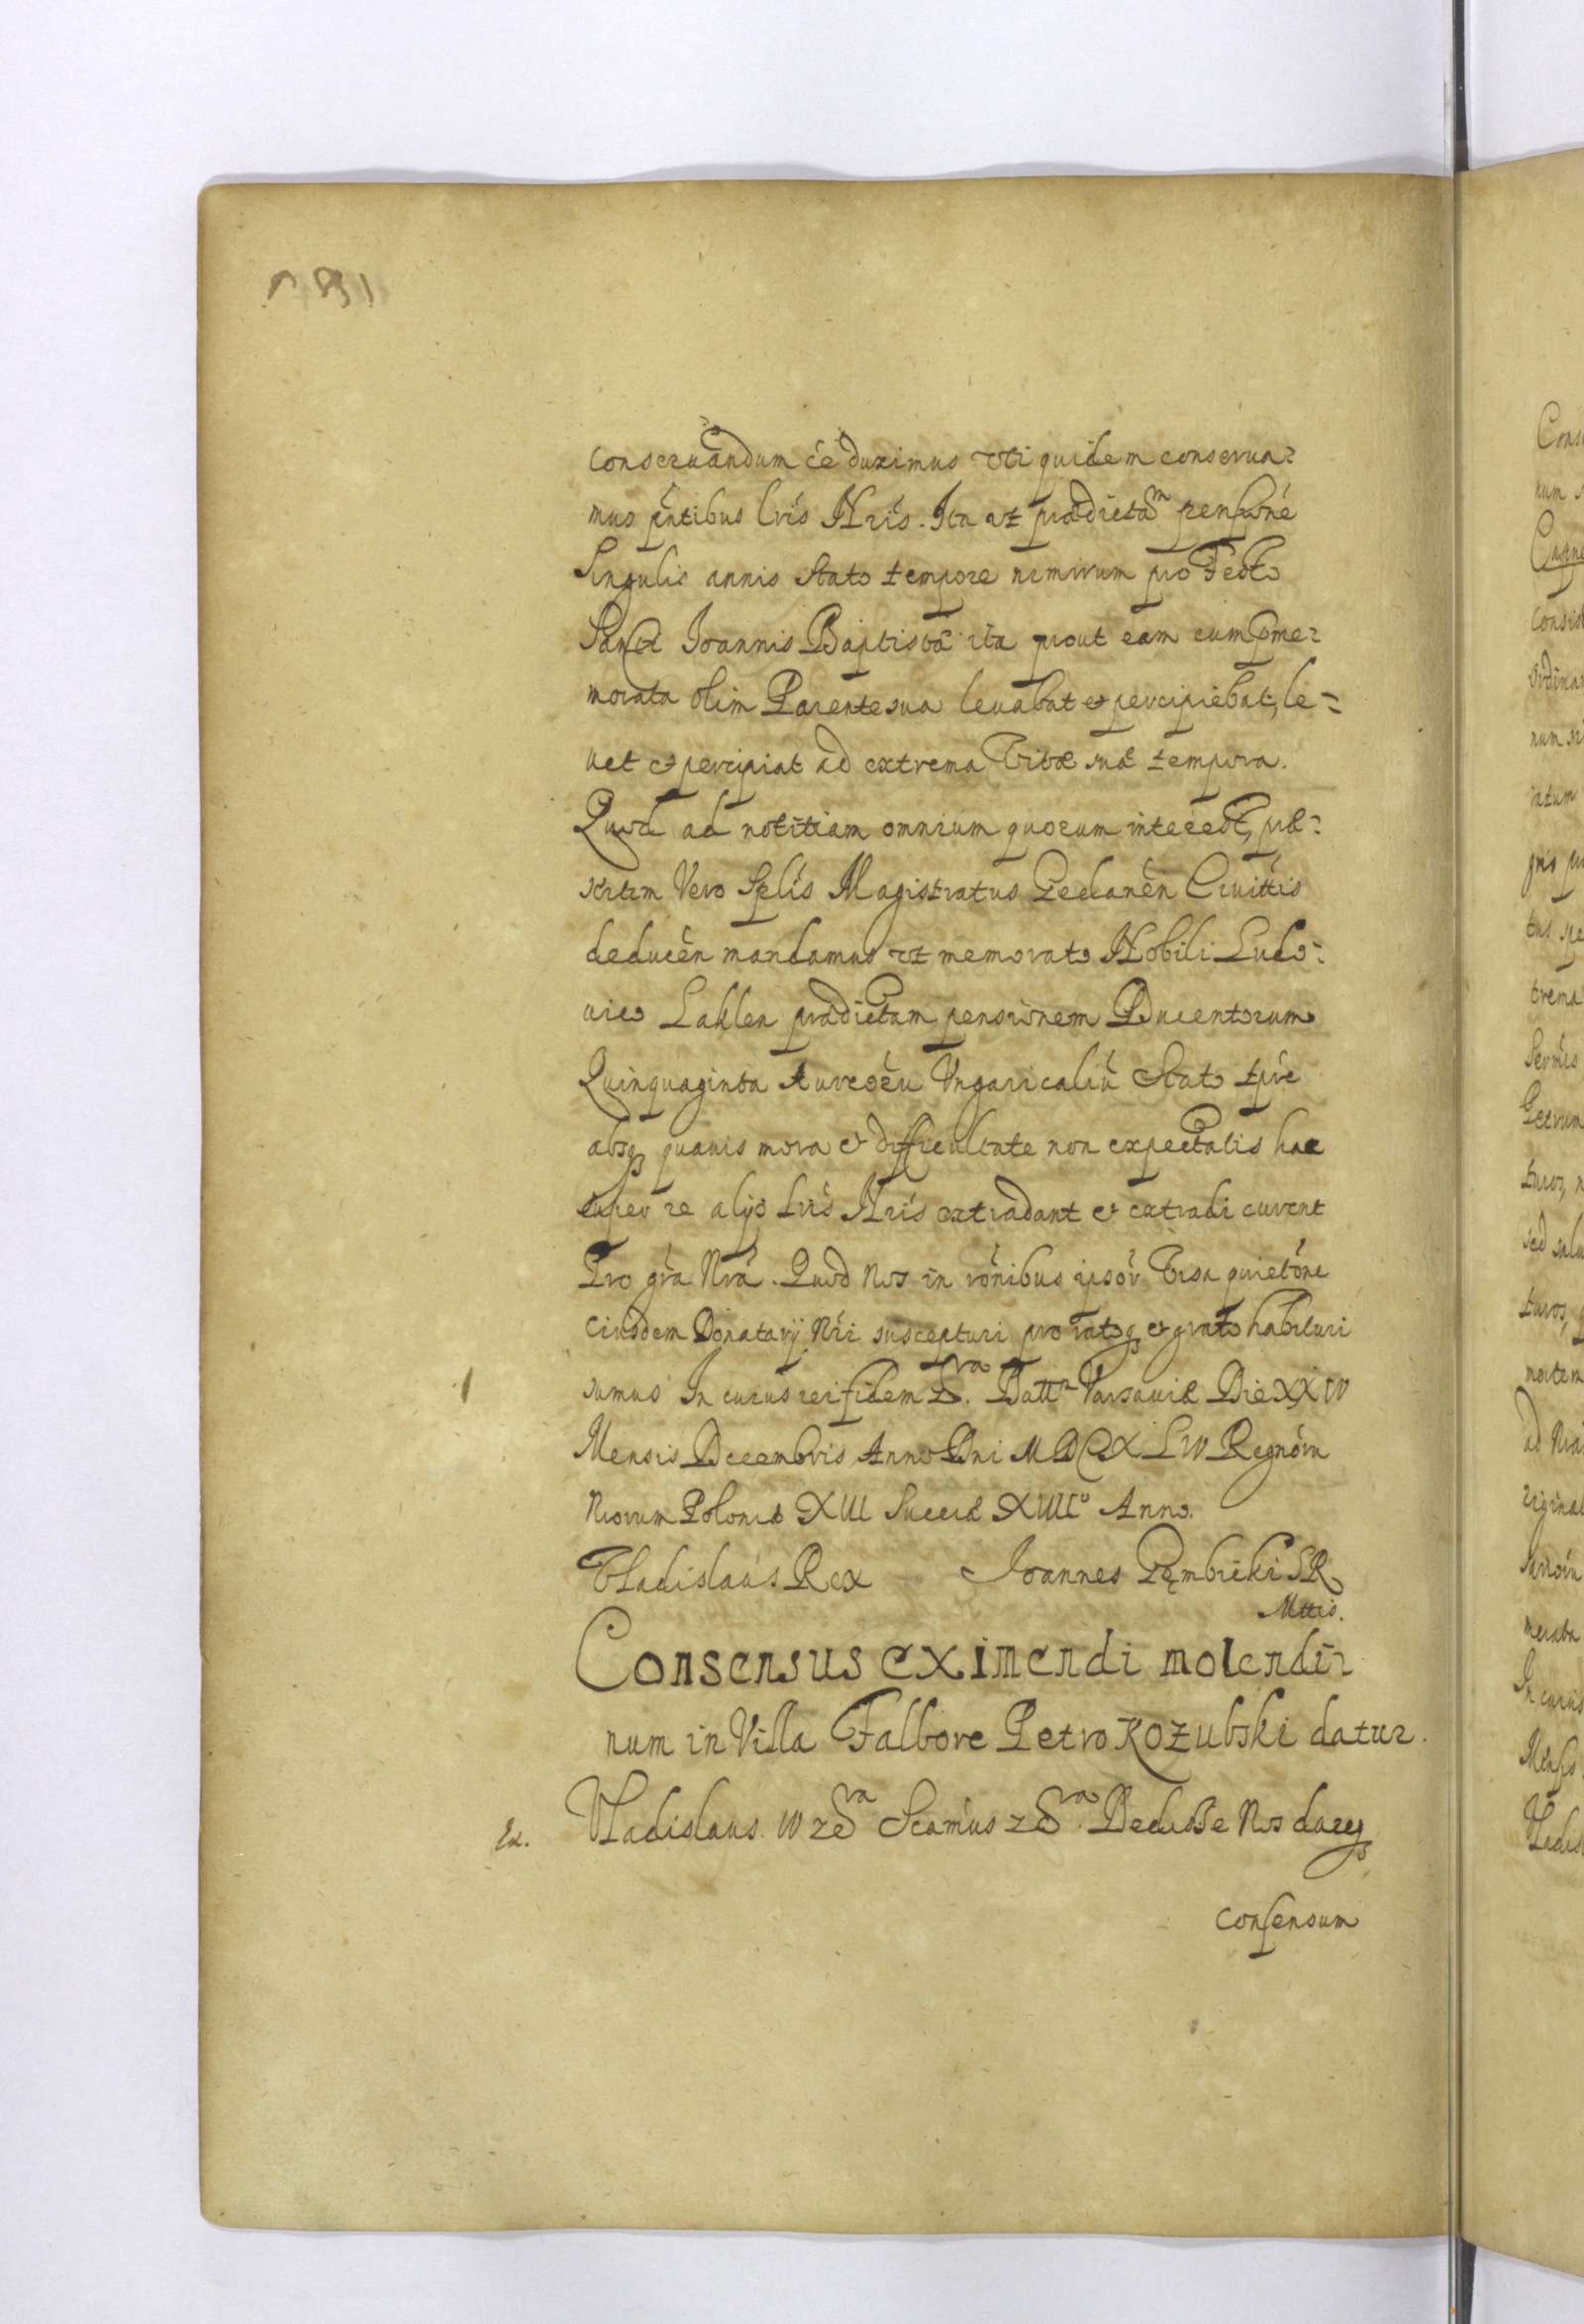 conseruandum ee duximus uti quidem conserua-
mus pntibus lris Nris. Ita ut prædictam pensione
Singulis annis stato tempore nimirum pro Festo
Sancti Joannis Baptistæ ita prout eam cum præme-
morata olim Parente sua leuabat et percipiebat, le-
uet et percipiat ad extrema Vitæ suæ tempora.
Quod ad notitiam omnium quorum interest, præ-
sertim Vero Splis Magistratus Gedanen Ciuittis
deducen mandamus ut memorato Nobili Ludo-
uico Lahlen prædictam pensionem Ducentorum
Quinquaginta Aureoru Vngaricaliu Stato tpre
absq quauis mora et difficultate non expectatis hac
super re alijs Lris Nris extradant et extradi curent
Pro gra Nra. Quod Nos in ronibus ipsor Visa quietone
eiusdem Donatarij Nri suscepturi pro ratoq et grato habituri
sumus In cuius rei fidem &ra. Datt Varsauiæ Die XXIV
Mensis Decembris Anno Dni MDCXLIV Regnoru
Nrorum Poloniæ XII Sueciæ XIII° Anno.
Vladislaus Rex Joannes Gembicki SR
Mttis.
Consensus eximendi molendi-
num in Villa Falbore Petro Kozubski datur.
Ex. Vladislaus IV &ra Scamus &ra. Dedisse Nos
consensum